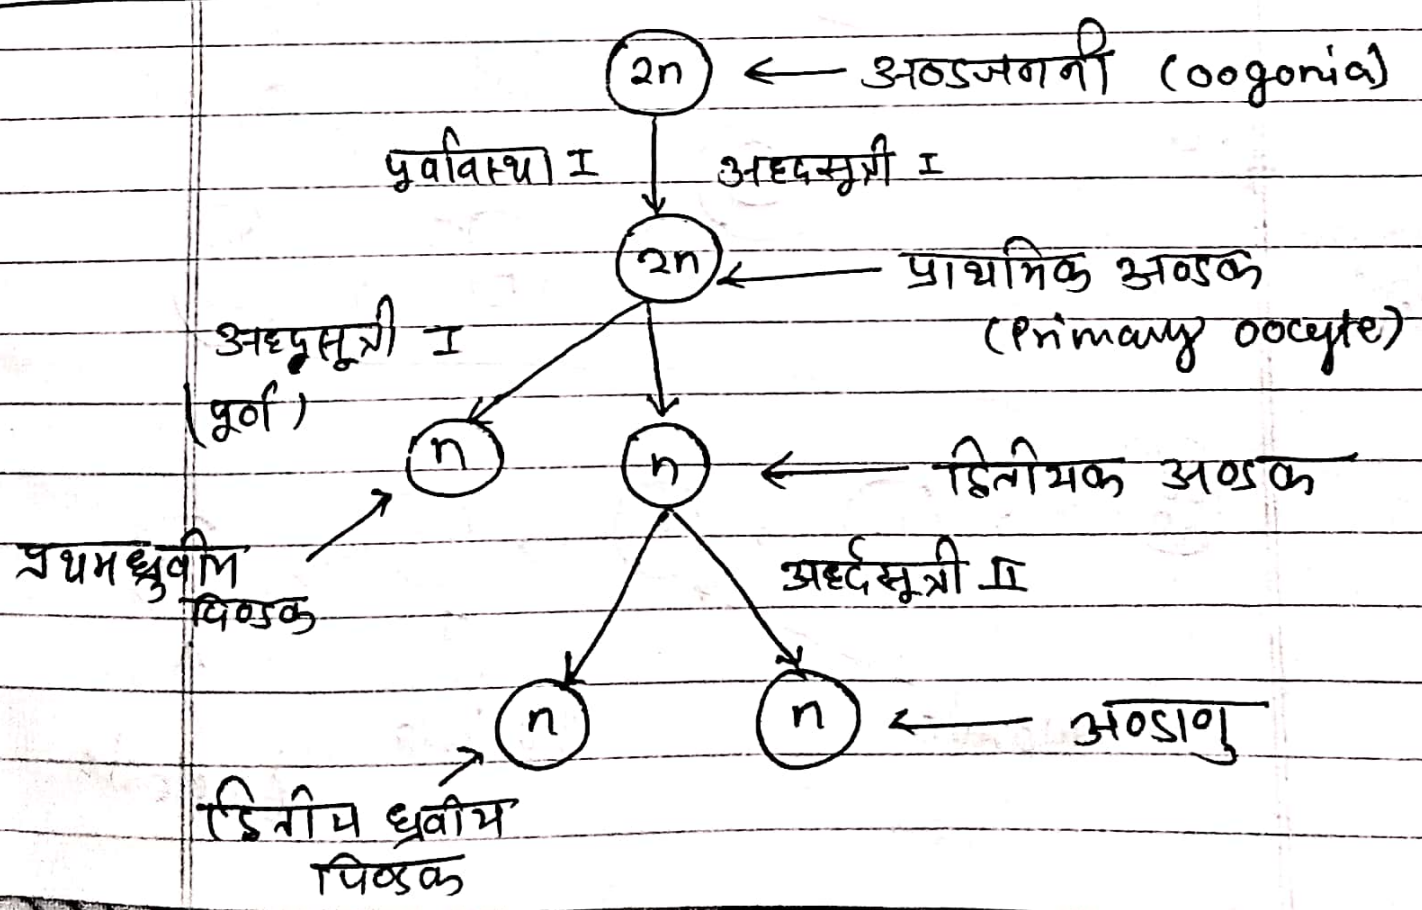 2n
अण्डजननी (oogonia)
पूर्वावस्था I
अर्द्धसूत्री I
2n
प्राथमिक अण्डक
(Primary oocyte)
अर्द्धसूत्री I
(पूर्ण)
n
n
द्वितीयक अण्डक
प्रथम ध्रुवीय
पिण्डक
अर्द्धसूत्री II
n
n
अण्डाणु
द्वितीय ध्रुवीय
पिण्डक